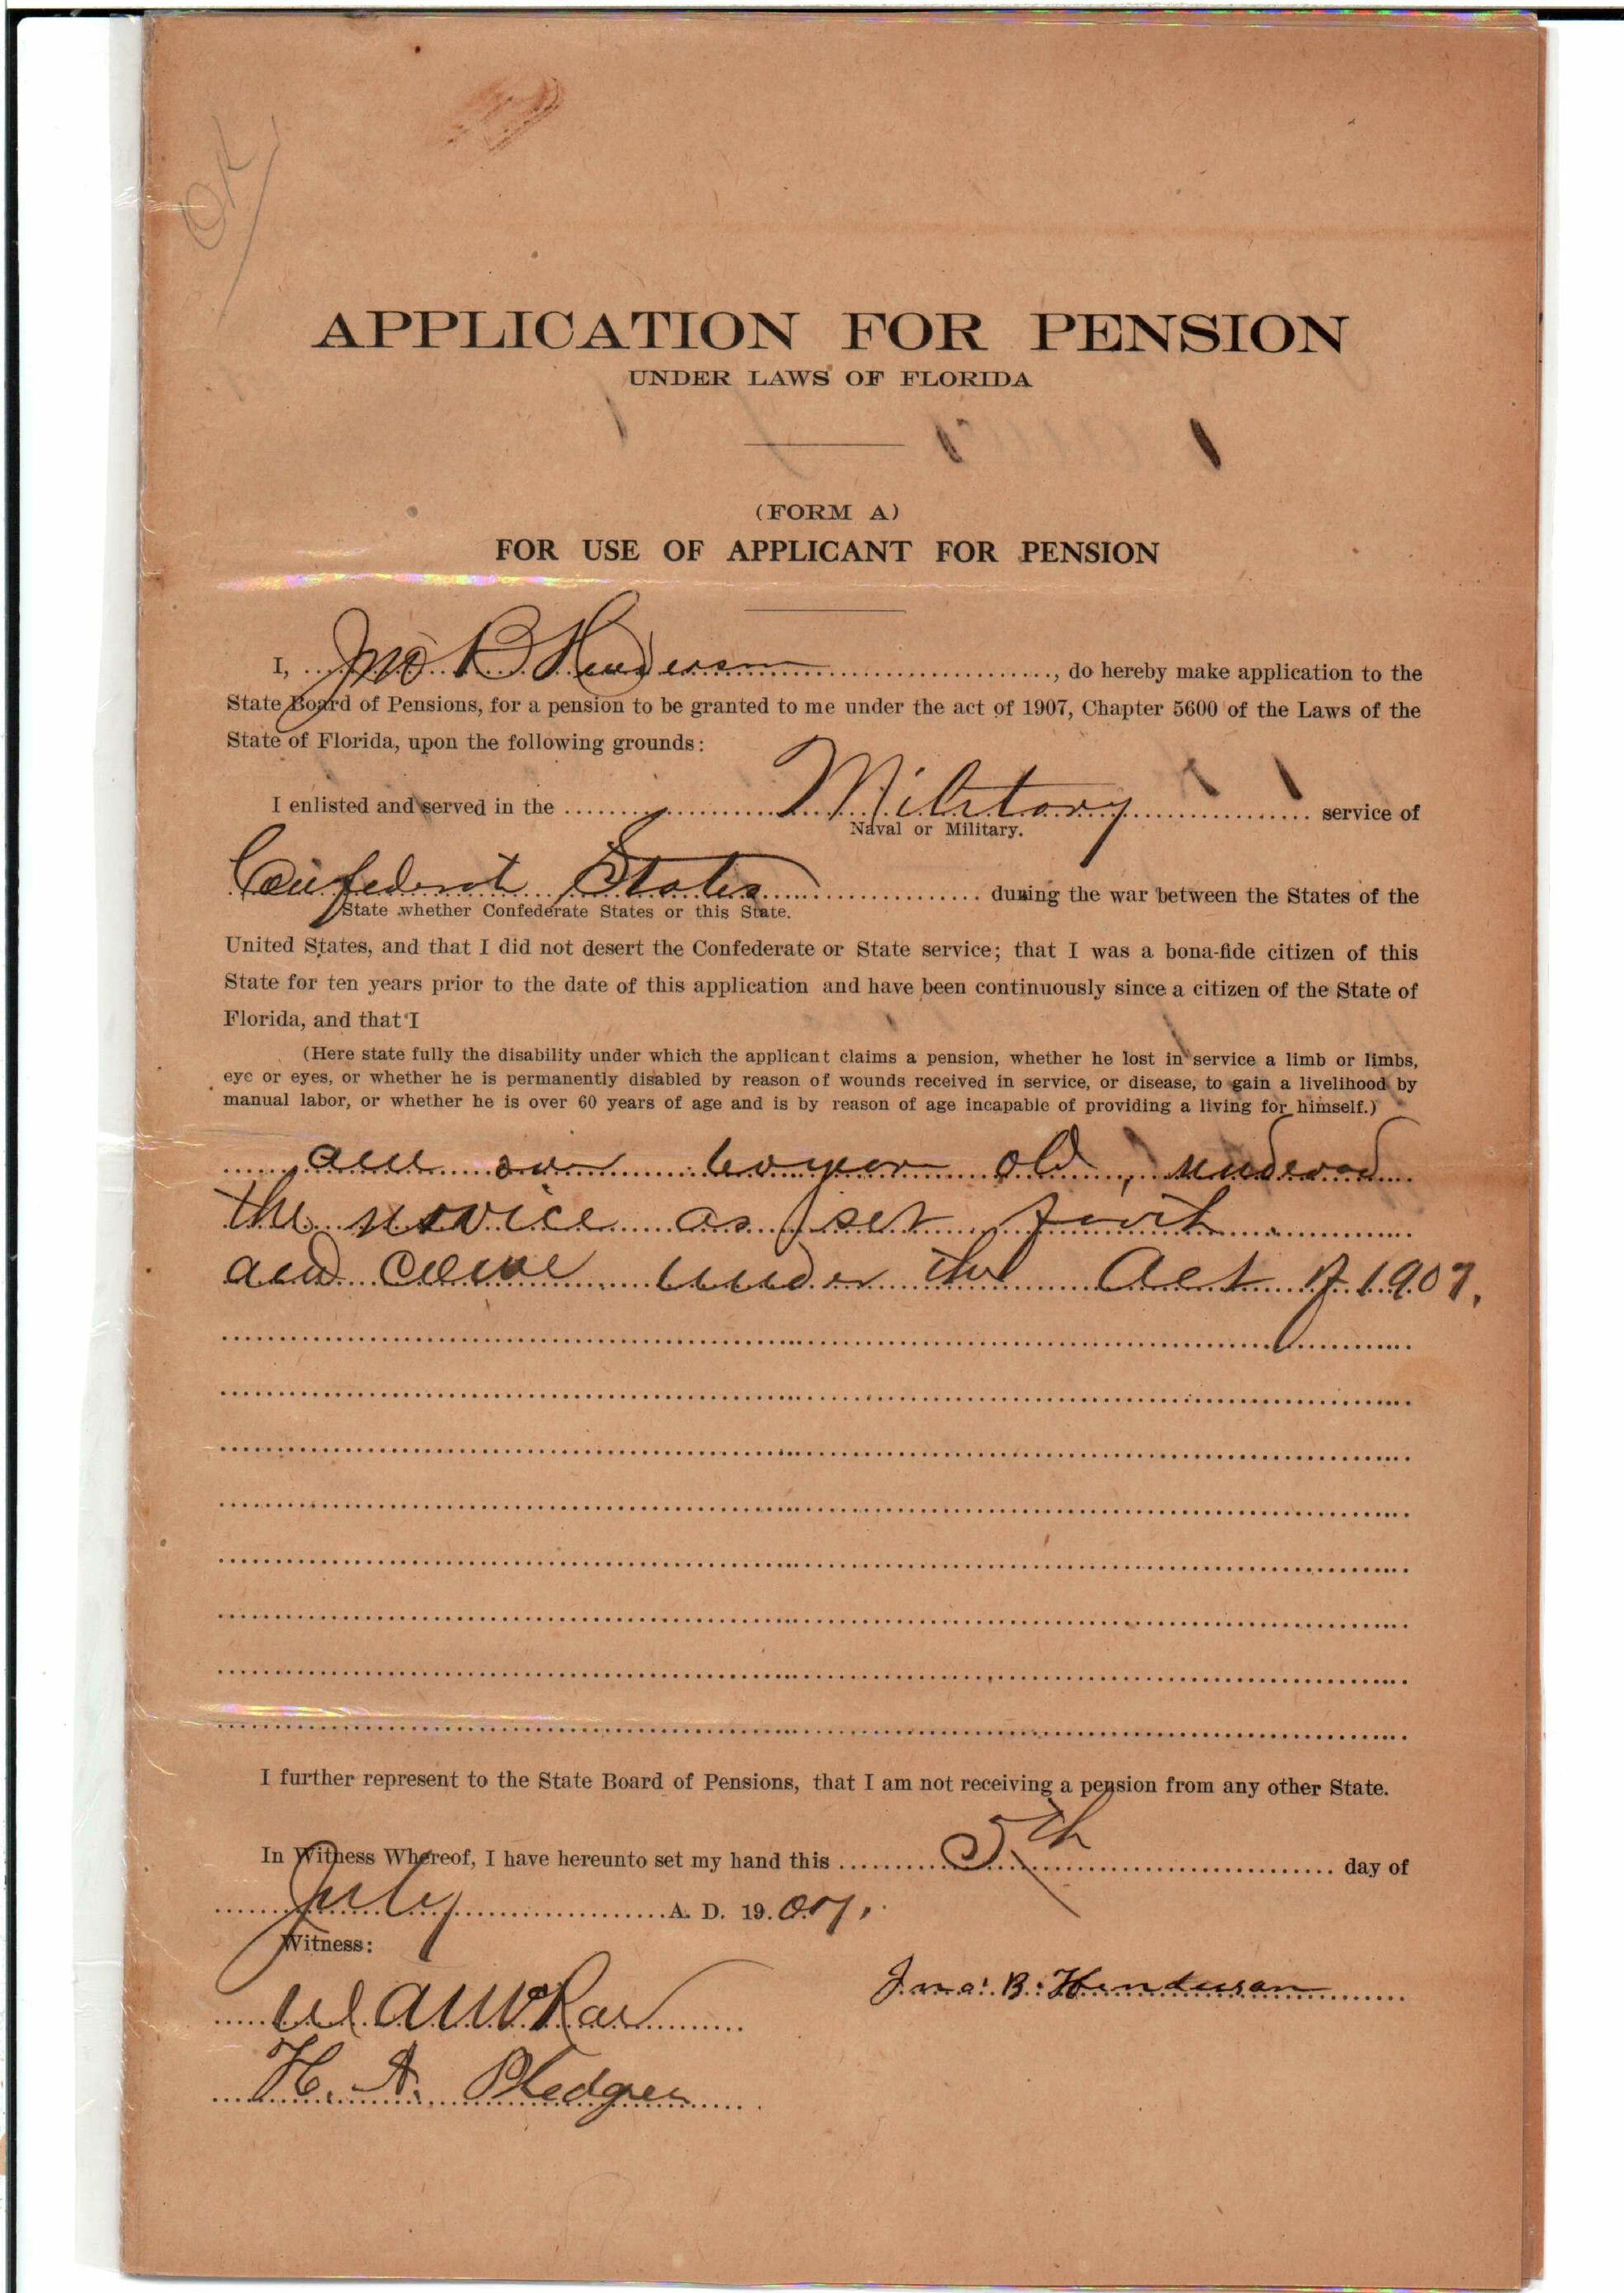 OK
APPLICATION FOR PENSION
UNDER LAWS OF FLORIDA
(FORM A)
FOR USE OF APPLICANT FOR PENSION
I, Jno B Henderson, do hereby make application to the
State Board of Pensions, for a pension to be granted to me under the act of 1907, Chapter 5600 of the Laws of the
State of Florida, upon the following grounds:
I enlisted and served in the Military service of
Naval or Military.
Confederat States during the war between the States of the
State whether Confederate States or this State.
United States, and that I did not desert the Confederate or State service; that I was a bona-fide citizen of this
State for ten years prior to the date of this application and have been continuously since a citizen of the State of
Florida, and that I
(Here state fully the disability under which the applicant claims a pension, whether he lost in service a limb or limbs,
eye or eyes, or whether he is permanently disabled by reason of wounds received in service, or disease, to gain a livelihood by
manual labor, or whether he is over 60 years of age and is by reason of age incapable of providing a living for himself.)
am over 60 year old,
the service as set forth
and come under the Act of 1907.
I further represent to the State Board of Pensions, that I am not receiving a pension from any other State.
In Witness Whereof, I have hereunto set my hand this 5th day of
July A. D. 1907.
Witness:
Jno. B. Henderson
H. A. Pledger